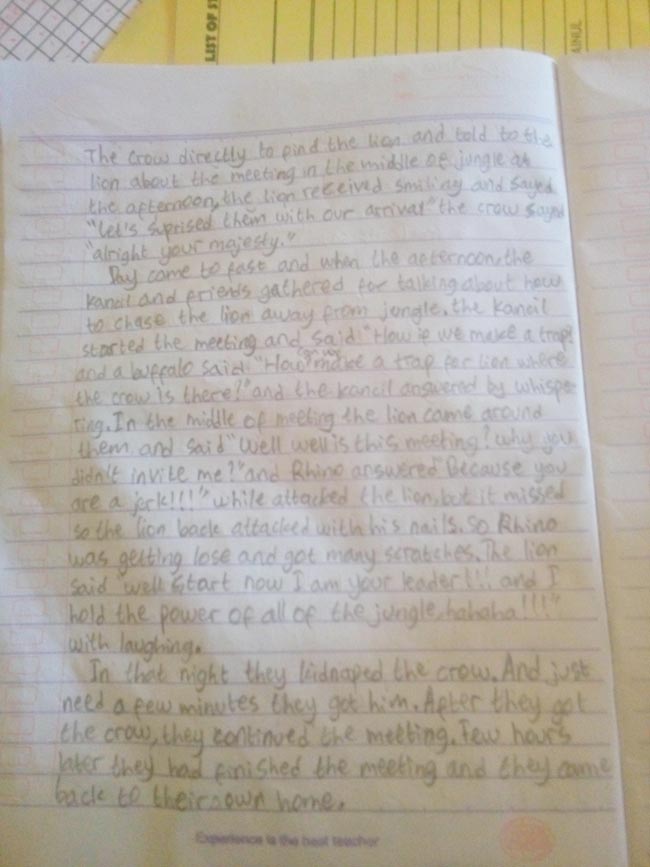 LIST OF S
AINUL
The crow directly to find the lion and told to the
lion about the meeting in the middle of jungle at
the afternoon, the lion received smiling and sayed
"let's suprised them with our arrival" the crow sayed
"alright your majesty."
Day came to fast and when the afternoon, the
kancil and friends gathered for talking about how
to chase the lion away from jungle. the kancil
started the meeting and said "How if we make a trap?
and a buffalo said: "How make a trap for lion where
the crow is there?" and the kancil answered by whispe
ring. In the middle of meeting the lion came around
them and said "Well well is this meeting? why you
didn't invite me?" and Rhino answered "Because you
are a jerk!!!" while attacked the lion, but it missed
so the lion back attacked with his nails. So Rhino
was getting lose and got many scratches. The lion
said "well start now I am your leader!!! and I
hold the power of all of the jungle, hahaha!!!"
with laughing.
In that night they kidnaped the crow. And just
need a few minutes they got him. After they got
the crow, they continued the meeting. Few hours
later they had finished the meeting and they came
back to their own home.
Experience is the best teacher